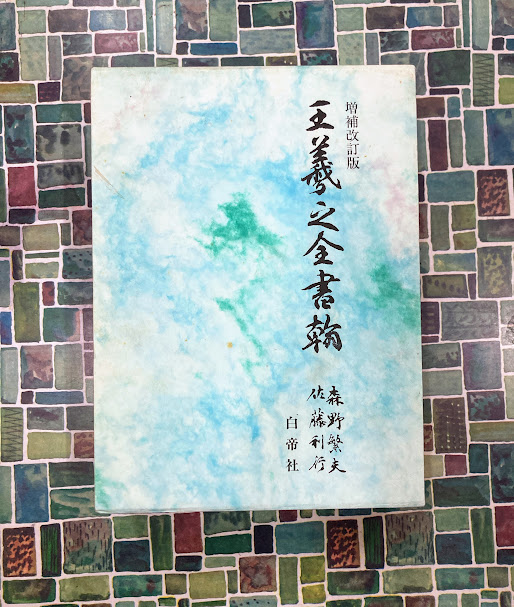 増補改訂版
王羲之全書翰
森野繁夫
佐藤利行
白帝社